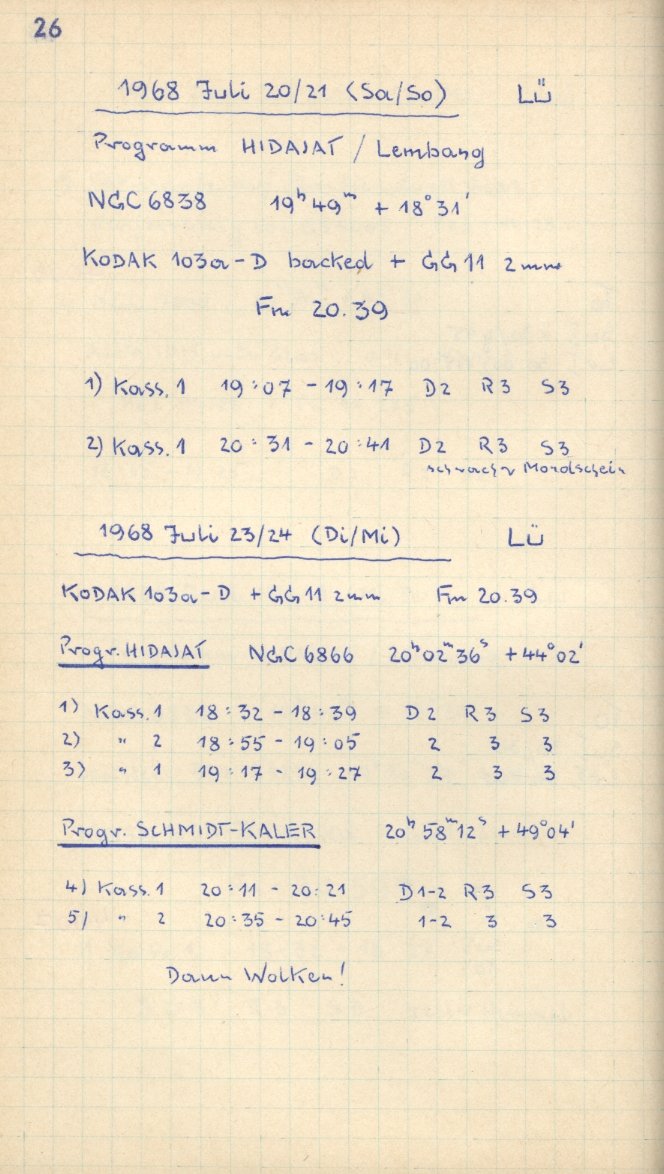 26
1968 Juli 20/21 (Sa/So) LÜ
Programm HIDAJAT / Lembang
NGC 6838 19ʰ49ᵐ + 18°31'
KODAK 103a-D backed + GG 11 2mm
Fm 20.39
1) Kass. 1 19:07 - 19:17 D2 R3 S3
2) Kass. 1 20:31 - 20:41 D2 R3 S3
schwacher Mondschein
1968 Juli 23/24 (Di/Mi) LÜ
KODAK 103a-D + GG 11 2mm Fm 20.39
Progr. HIDAJAT NGC 6866 20ʰ02ᵐ36ˢ +44°02'
1) Kass. 1 18:32 - 18:39 D2 R3 S3
2) " 2 18:55 - 19:05 2 3 3
3) " 1 19:17 - 19:27 2 3 3
Progr. SCHMIDT-KALER 20ʰ58ᵐ12ˢ +49°04'
4) Kass. 1 20:11 - 20:21 D1-2 R3 S3
5) " 2 20:35 - 20:45 1-2 3 3
Dann Wolken!